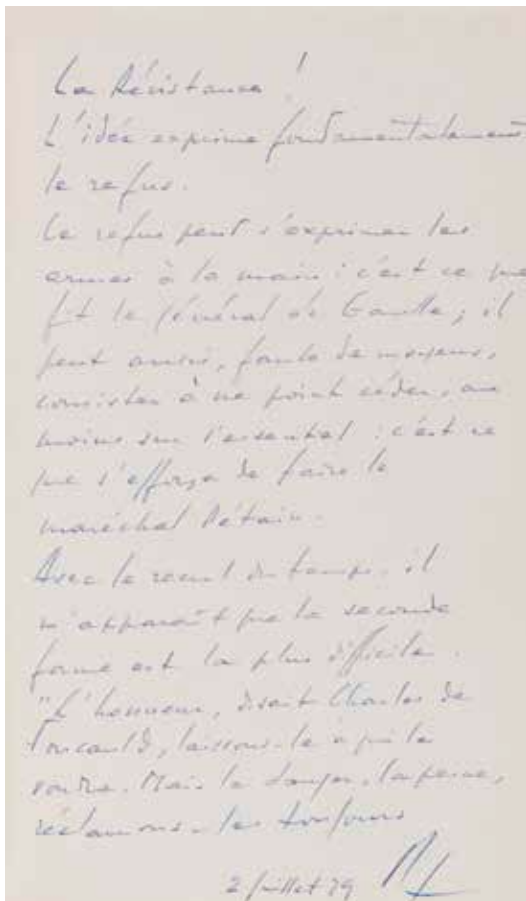 La Résistance !
L'idée exprime fondamentalement
le refus.
Ce refus peut s'exprimer les
armes à la main : c'est ce que
fit le Général de Gaulle ; il
peut aussi, faute de moyens,
consister à ne point céder, au
moins sur l'essentiel : c'est ce
que s'efforça de faire le
maréchal Pétain.
Avec le recul du temps, il
m'apparaît que la seconde
forme est la plus difficile.
"L'honneur, disait Charles de
Foucauld, laissons-le à qui le
voudra. Mais le danger, la peine,
réclamons-les toujours
2 juillet 79